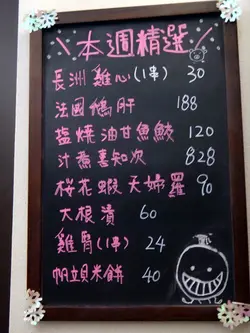 本週精選
長洲雞心(1串) 30
法國鴨肝 188
塩燒油甘魚鮫 120
汁煮喜知次 828
桜花蝦天婦羅 90
大根漬 60
雞胗(1串) 24
帆立貝米餅 40